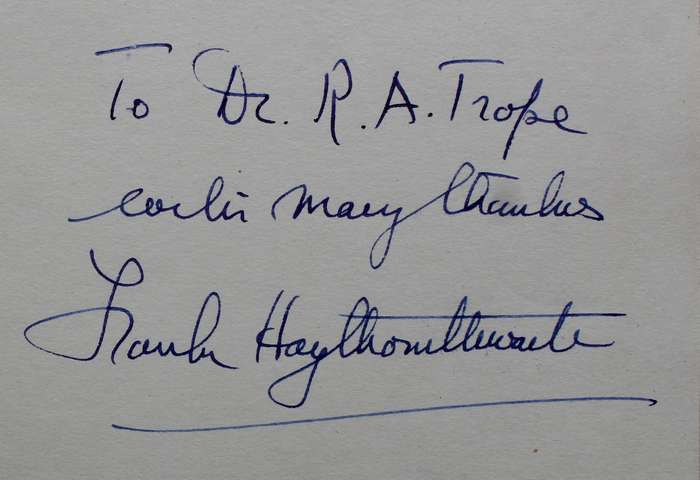 To Dr. R. A. Trope
with many thanks
Frank Haythornthwaite